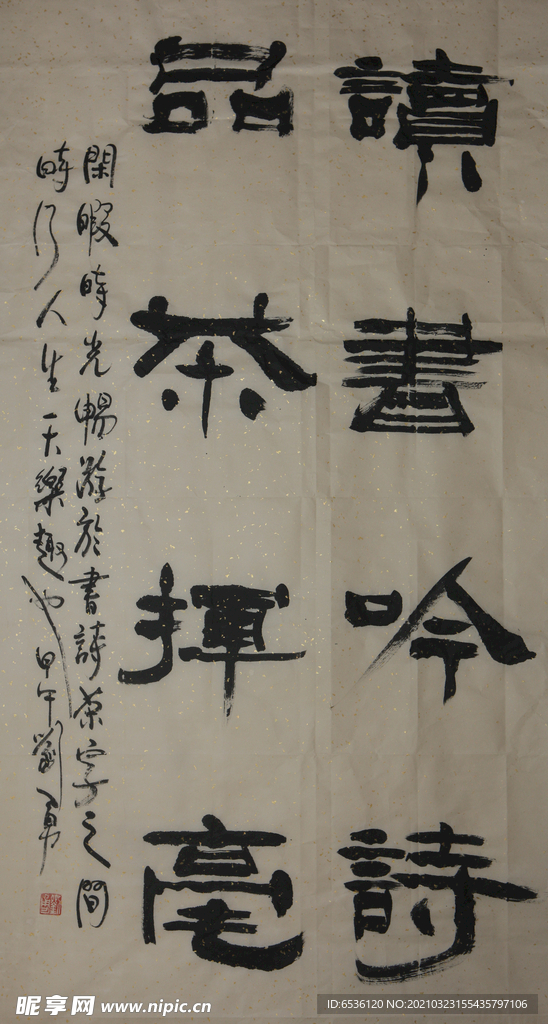 讀書吟詩
品茶揮毫
閑暇時光暢游於書詩茶字之間
時乃人生一大樂趣也甲午劉勇
昵享网 www.nipic.cn
ID:6536120 NO:20210323155435797106